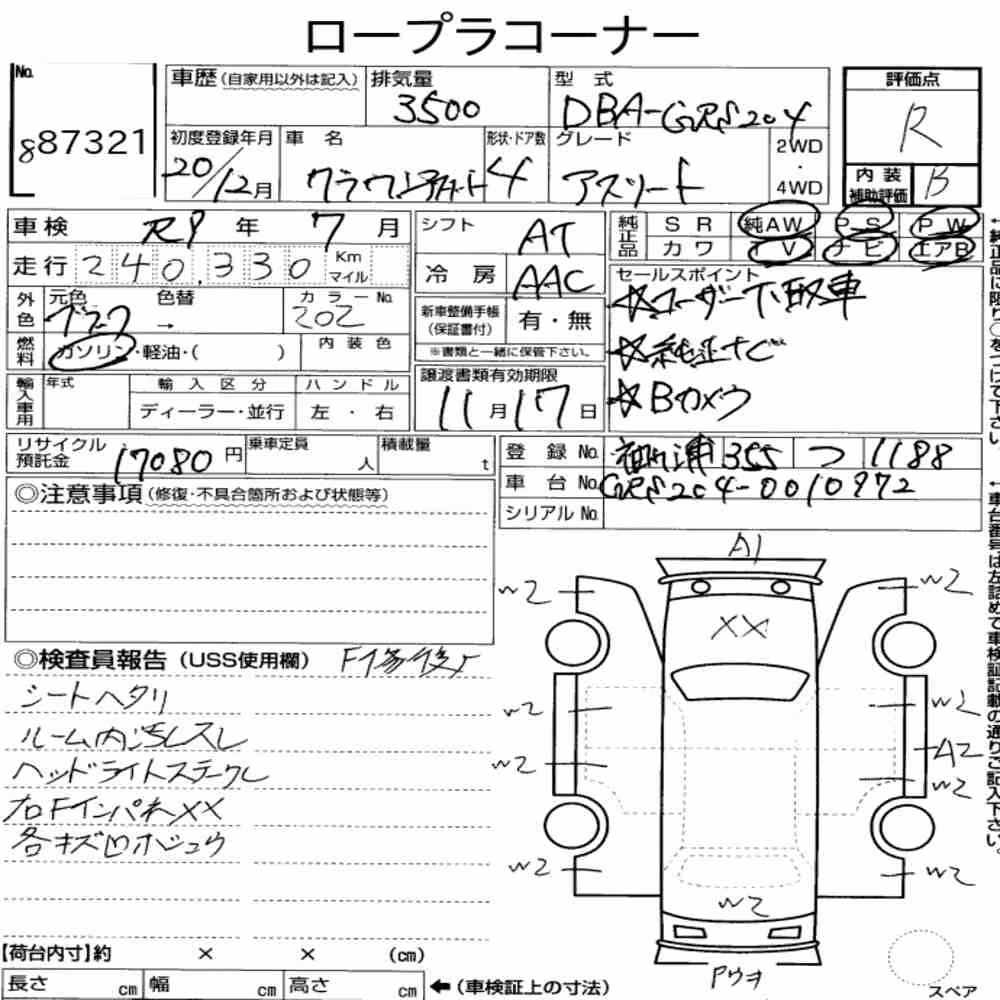 ロープラコーナー
No.
887321
車歴(自家用以外は記入)
排気量
3500
型式
DBA-GRS204
評価点
R
初度登録年月
20/12月
車名
形状・ドア数
4
グレード
アスリート
2WD
・
4WD
内装
補助評価
B
車検
R9年7月
シフト
AT
純正品
SR
純AW
P S
P W
カワ
T V
ナビ
エアB
走行
240,330
Km
マイル
冷房
AAC
セールスポイント
☆ユーザー下取車
☆純正ナビ
☆Bカメラ
外色
元色
色替
→
カラーNo.
202
新車整備手帳
(保証書付)
有・無
※書類と一緒に保管下さい。
燃料
ガソリン・軽油・( )
内装色
輸入車用
年式
輸入区分
ディーラー・並行
ハンドル
左・右
譲渡書類有効期限
11月17日
リサイクル
預託金
17080円
乗車定員
人
積載量
t
登録No.
355
つ
1188
車台No.
GRS204-0010972
シリアルNo.
◎注意事項(修復・不具合箇所および状態等)
◎検査員報告(USS使用欄)
シートヘタリ
ルーム内汚レスレ
ヘッドライトステークレ
右FインパネXX
各キズ凹ホシュウ
A1
XX
W2
W2
W2
W2
W2
A2
W2
W2
W2
W2
W2
【荷台内寸】約 × × (cm)
長さ cm
幅 cm
高さ cm
←(車検証上の寸法)
スペア
↑純正品に限り○をつけて下さい。
↑車台番号は左詰めで車検証記載の通りご記入下さい。